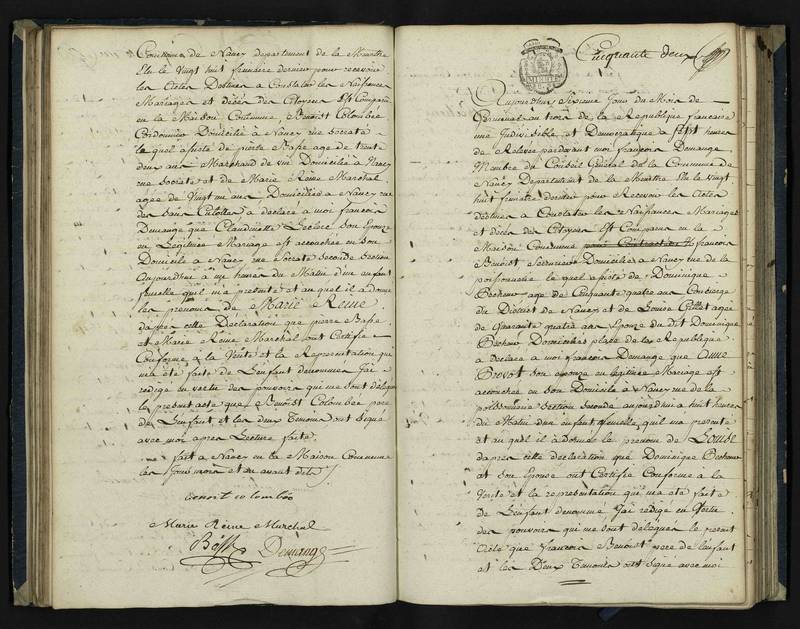 Commune de Nancy departement de la Meurthe
Elu le vingt huit frimaire dernier pour recevoir
les actes Destines a Constater les Naissances
Mariages et décès des Citoyens Est Comparu
en la Maison Commune, Benoist Colombée
Cordonnier Domicilié a Nancy rue Socrate
lequel assisté de pierre Basse age de trente
deux ans Marchand de vin Domicilié a Nancy
rue Socrate et de Marie Reine Maréchal
agée de vingt ans Domiciliée a Nancy rue
des Sans Culottes a declaré a moi françois
Demange que Claudinette Leclerc son Epouse
en Legitime Mariage est accouchée en son
Domicile a Nancy rue Socrate seconde Section
Aujourdhui à une heure du Matin d'un enfant
femelle quil m'a presenté et au quel il a donné
les prenoms de Marie Reine.
dapres cette Declaration que pierre Basse
et Marie Reine Marchal ont Certifié
Conforme a la Verité et la Representation qui
m'a été faite de L'enfant denommé J'ai
redigé en vertu des pouvoirs qui me sont délégués
le present acte que Benoist Colombée pere
de L'enfant et les deux Temoins ont signé
avec moi apres Lecture faite.
fait a Nancy en la Maison Commune
les Jour mois et an avant dits
benoit colombée
Marie Reine Marchal
Basse Demange
Cinquante deux
Aujourdhui Sixieme Jour du Mois de
Germinal an trois de la Republique francaise
une Indivisible, et Democratique a Sept heures
de Relevée pardevant moi françois Demange
Membre du Conseil Général de la Commune de
Nancy Departement de la Meurthe Elu le vingt
huit frimaire dernier pour Recevoir les Actes
déstinés a Constater les Naissances Mariages
et décès des Citoyens Est Comparu en la
Maison Commune françois
Benoist Serrurier Domicilié a Nancy rue de la
poissonnerie le quel assisté de Dominique
Bechow age de Cinquante quatre ans Concierge
du District de Nancy et de Louise Gillet agée
de Quarante quatre ans Epouse du dit Dominique
Bechow Domiciliés place de la Republique
a Declaré a moi françois Demange que Anne
Brevot son epouse en legitime Mariage est
accouchée en son Domicile a Nancy rue de la
poissonnerie Section seconde aujourdhui a huit heures
du Matin d'un enfant femelle, quil m'a presenté
et au quel il à donné le prenom de Louise
dapres cette declaration que Dominique Bechow
et son Epouse ont Certifié Conforme à la
Verité et la representation qui m'a eté faite
de L'enfant denommé, J'ai redigé en Vertu
des pouvoirs qui me sont délégués le present
Acte que françois Benoist pere de L'enfant
et les Deux Temoins ont signé avec moi